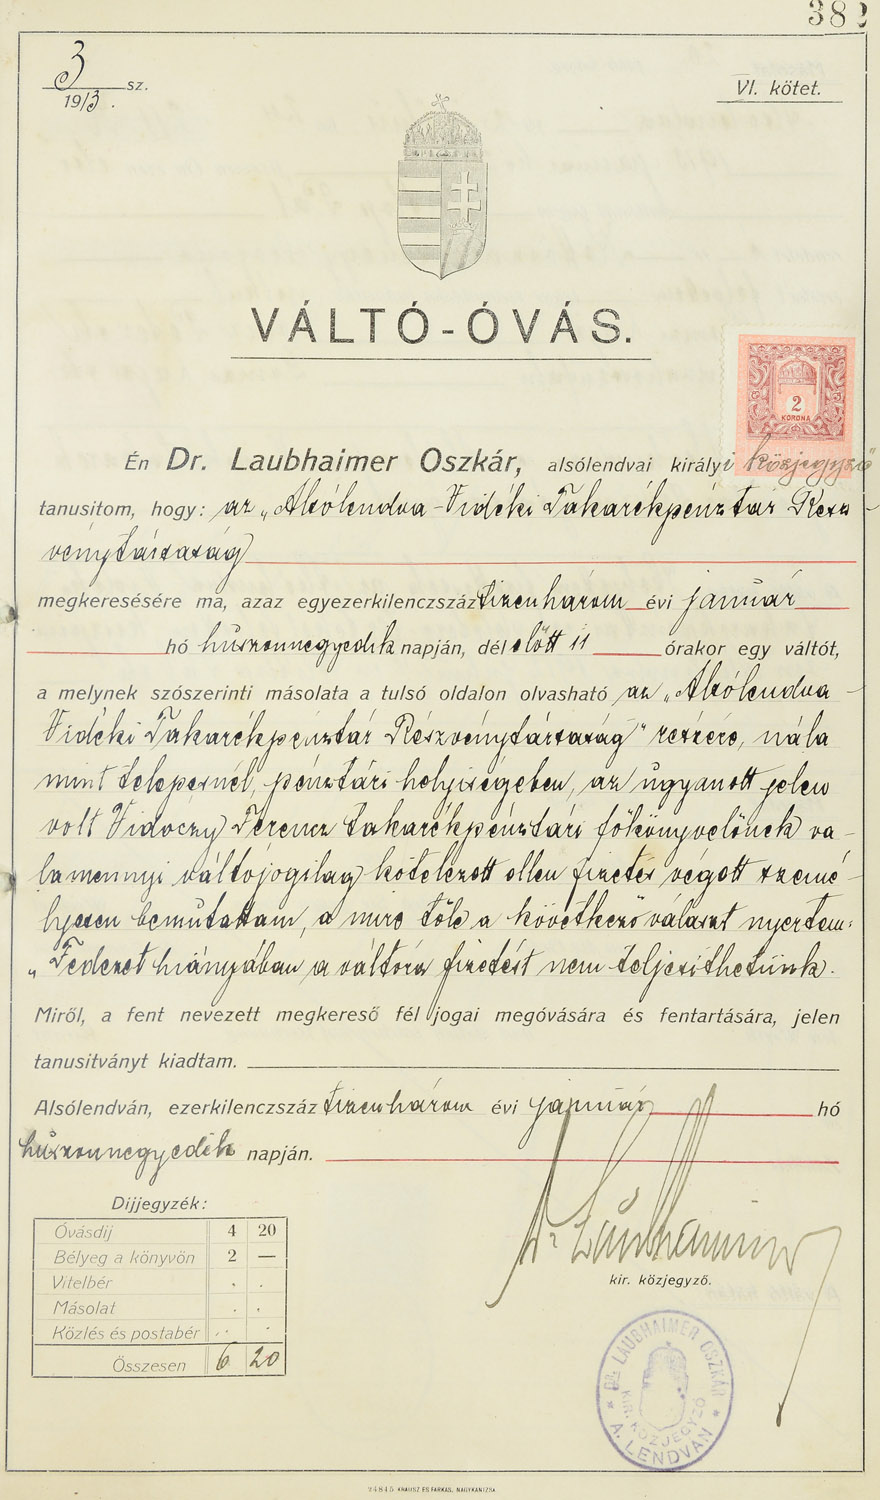 382
3 sz.
1913.
VI. kötet.
VÁLTÓ-ÓVÁS.
2
KORONA
Én Dr. Laubhaimer Oszkár, alsólendvai királyi közjegyző
tanusitom, hogy: az „Alsólendva-Vidéki Takarékpénztár Rész-
vénytársaság
megkeresésére ma, azaz egyezerkilenczszáz tizenhárom évi január
hó huszonnegyedik napján, dél előtt 11 órakor egy váltót,
a melynek szószerinti másolata a tulsó oldalon olvasható az „Alsólendva-
Vidéki Takarékpénztár Részvénytársaság" részére, nála
mint telepesnél, pénztári helyiségében, az ugyanott jelen
volt Vidóczy Ferencz takarékpénztári főkönyvelőnek va-
lamennyi váltójogilag kötelezett ellen fizetés végett szemé-
lyesen bemutattam, a mire tőle a következő választ nyertem:
„Fedezet hiányában a váltóra fizetést nem teljesithetünk.
Miről, a fent nevezett megkereső fél jogai megóvására és fentartására, jelen
tanusitványt kiadtam.
Alsólendván, ezerkilenczszáz tizenhárom évi január hó
huszonnegyedik napján.
Dijjegyzék:
Óvásdij 4 20
Bélyeg a könyvön 2 —
Vitelbér . .
Másolat . .
Közlés és postabér . .
Összesen 6 20
Dr Laubhaimer
kir. közjegyző.
* DR. LAUBHAIMER OSZKÁR *
KIR. KÖZJEGYZŐ
A. LENDVÁN
24845 KRAUSZ ÉS FARKAS, NAGYKANIZSA